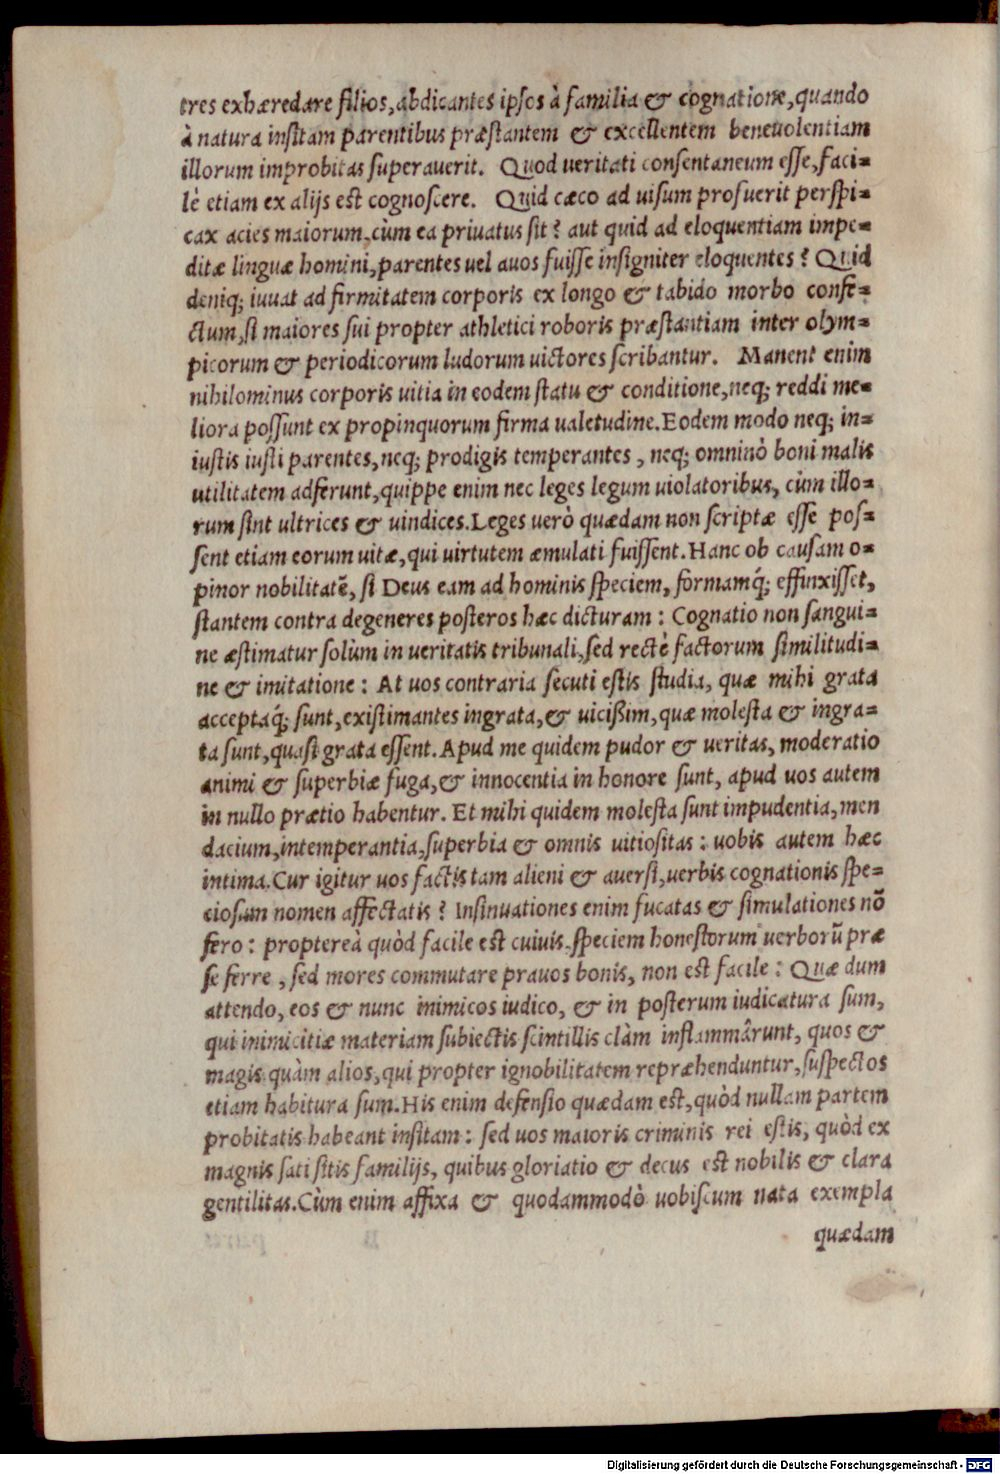 tres exhæredare filios, abdicantes ipsos à familia & cognatione, quando
à natura insitam parentibus præstantem & excellentem beneuolentiam
illorum improbitas superauerit. Quod ueritati consentaneum esse, faci=
lè etiam ex alijs est cognoscere. Quid cæco ad uisum profuerit perspi=
cax acies maiorum, cùm ea priuatus sit? aut quid ad eloquentiam impe=
ditæ linguæ homini, parentes uel auos fuisse insigniter eloquentes? Quid
deniq; iuuat ad firmitatem corporis ex longo & tabido morbo confe=
ctum, si maiores sui propter athletici roboris præstantiam inter olym=
picorum & periodicorum ludorum uictores scribantur. Manent enim
nihilominus corporis uitia in eodem statu & conditione, neq; reddi me=
liora possunt ex propinquorum firma ualetudine. Eodem modo neq; in=
iustis iusti parentes, neq; prodigis temperantes, neq; omninò boni malis
utilitatem adferunt, quippe enim nec leges legum uiolatoribus, cùm illo=
rum sint ultrices & uindices. Leges uerò quædam non scriptæ esse pos=
sent etiam eorum uitæ, qui uirtutem æmulati fuissent. Hanc ob causam o=
pinor nobilitatẽ, si Deus eam ad hominis speciem, formamq́; effinxisset,
stantem contra degeneres posteros hæc dicturam: Cognatio non sangui=
ne æstimatur solùm in ueritatis tribunali, sed rectè factorum similitudi=
ne & imitatione: At uos contraria secuti estis studia, quæ mihi grata
acceptaq́; sunt, existimantes ingrata, & uicißim, quæ molesta & ingra=
ta sunt, quasi grata essent. Apud me quidem pudor & ueritas, moderatio
animi & superbiæ fuga, & innocentia in honore sunt, apud uos autem
in nullo prætio habentur. Et mihi quidem molesta sunt impudentia, men
dacium, intemperantia, superbia & omnis uitiositas: uobis autem hæc
intima. Cur igitur uos factis tam alieni & auersi, uerbis cognationis spe=
ciosum nomen affectatis? Insinuationes enim fucatas & simulationes nõ
fero: proptereà quòd facile est cuiuis speciem honestorum uerborũ præ
se ferre, sed mores commutare prauos bonis, non est facile: Quæ dum
attendo, eos & nunc inimicos iudico, & in posterum iudicatura sum,
qui inimicitiæ materiam subiectis scintillis clàm inflammârunt, quos &
magis quàm alios, qui propter ignobilitatem repræhenduntur, suspectos
etiam habitura sum. His enim defensio quædam est, quòd nullam partem
probitatis habeant insitam: sed uos maioris criminis rei estis, quòd ex
magnis sati sitis familijs, quibus gloriatio & decus est nobilis & clara
gentilitas. Cùm enim affixa & quodammodò uobiscum nata exempla
quædam
Digitalisierung gefördert durch die Deutsche Forschungsgemeinschaft - DFG